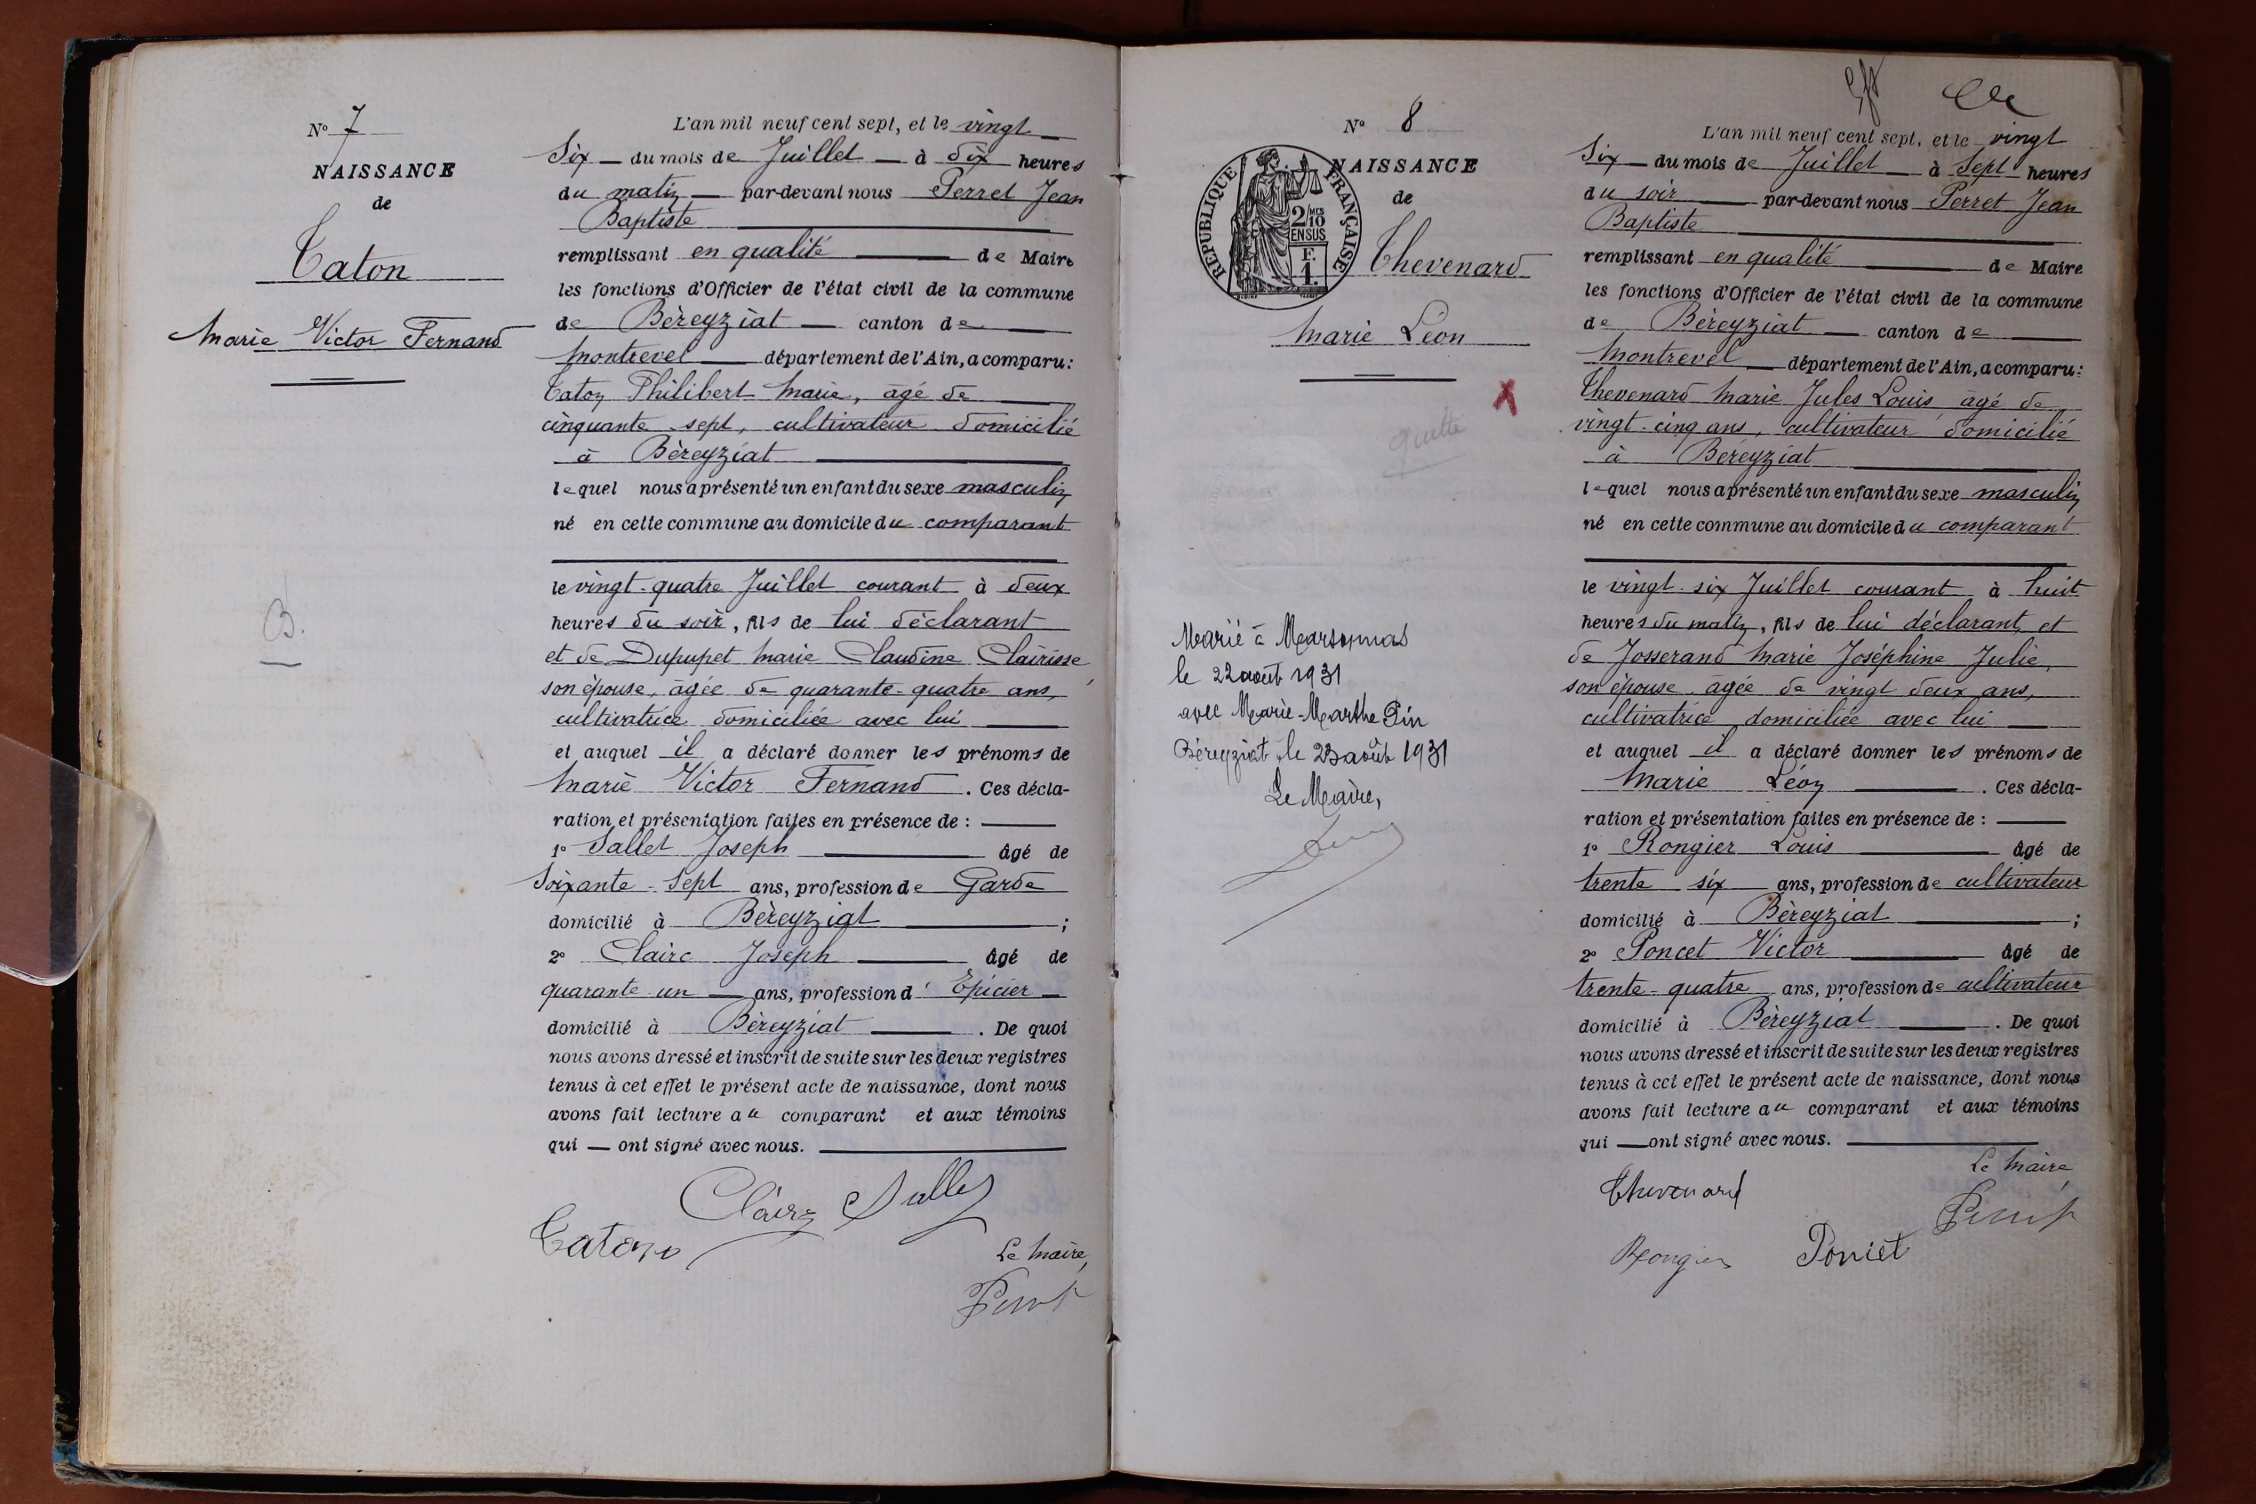 N° 7
NAISSANCE
de
Caton
Marie Victor Fernand
B.
L'an mil neuf cent sept, et le vingt
Six du mois de Juillet à dix heures
du matin par-devant nous Perret Jean
Baptiste
remplissant en qualité de Maire
les fonctions d'Officier de l'état civil de la commune
de Béreyziat canton de
Montrevel département de l'Ain, a comparu:
Caton Philibert Marie, âgé de
cinquante-sept, cultivateur domicilié
à Béreyziat
lequel nous a présenté un enfant du sexe masculin
né en cette commune au domicile du comparant
le vingt-quatre Juillet courant à deux
heures du soir, fils de lui déclarant
et de Dupupet Marie Claudine Clairisse,
son épouse, âgée de quarante-quatre ans,
cultivatrice domiciliée avec lui
et auquel il a déclaré donner les prénoms de
Marie Victor Fernand. Ces décla-
ration et présentation faites en présence de:
1° Sallet Joseph âgé de
Soixante-Sept ans, profession de Garde
domicilié à Béreyziat;
2° Clairc Joseph âgé de
quarante un ans, profession d'Epicier
domicilié à Béreyziat. De quoi
nous avons dressé et inscrit de suite sur les deux registres
tenus à cet effet le présent acte de naissance, dont nous
avons fait lecture au comparant et aux témoins
qui ont signé avec nous.
Caton
Le Maire,
Perret
N° 8
NAISSANCE
de
REPUBLIQUE FRANÇAISE
2/10 MES
EN SUS
F.
1.
Thevenard
Marie Léon
X
quitte
Marié à Marsonnas
le 22 août 1931
avec Marie-Marthe Pin
Béreyziat, le 23 août 1931
Le Maire,
L'an mil neuf cent sept, et le vingt
Six du mois de Juillet à Sept heures
du soir par-devant nous Perret Jean
Baptiste
remplissant en qualité de Maire
les fonctions d'Officier de l'état civil de la commune
de Béreyziat canton de
Montrevel département de l'Ain, a comparu:
Thevenard Marie Jules Louis âgé de
vingt-cinq ans, cultivateur domicilié
à Béreyziat
lequel nous a présenté un enfant du sexe masculin
né en cette commune au domicile du comparant
le vingt-six Juillet courant à huit
heures du matin, fils de lui déclarant, et
de Josserand Marie Joséphine Julie,
son épouse âgée de vingt deux ans,
cultivatrice domiciliée avec lui
et auquel il a déclaré donner les prénoms de
Marie Léon. Ces décla-
ration et présentation faites en présence de:
1° Rongier Louis âgé de
trente six ans, profession de cultivateur
domicilié à Béreyziat;
2° Poncet Victor âgé de
trente-quatre ans, profession de cultivateur
domicilié à Béreyziat. De quoi
nous avons dressé et inscrit de suite sur les deux registres
tenus à cet effet le présent acte de naissance, dont nous
avons fait lecture au comparant et aux témoins
qui ont signé avec nous.
Le Maire,
Thevenard
Perret
Rongier Poncet